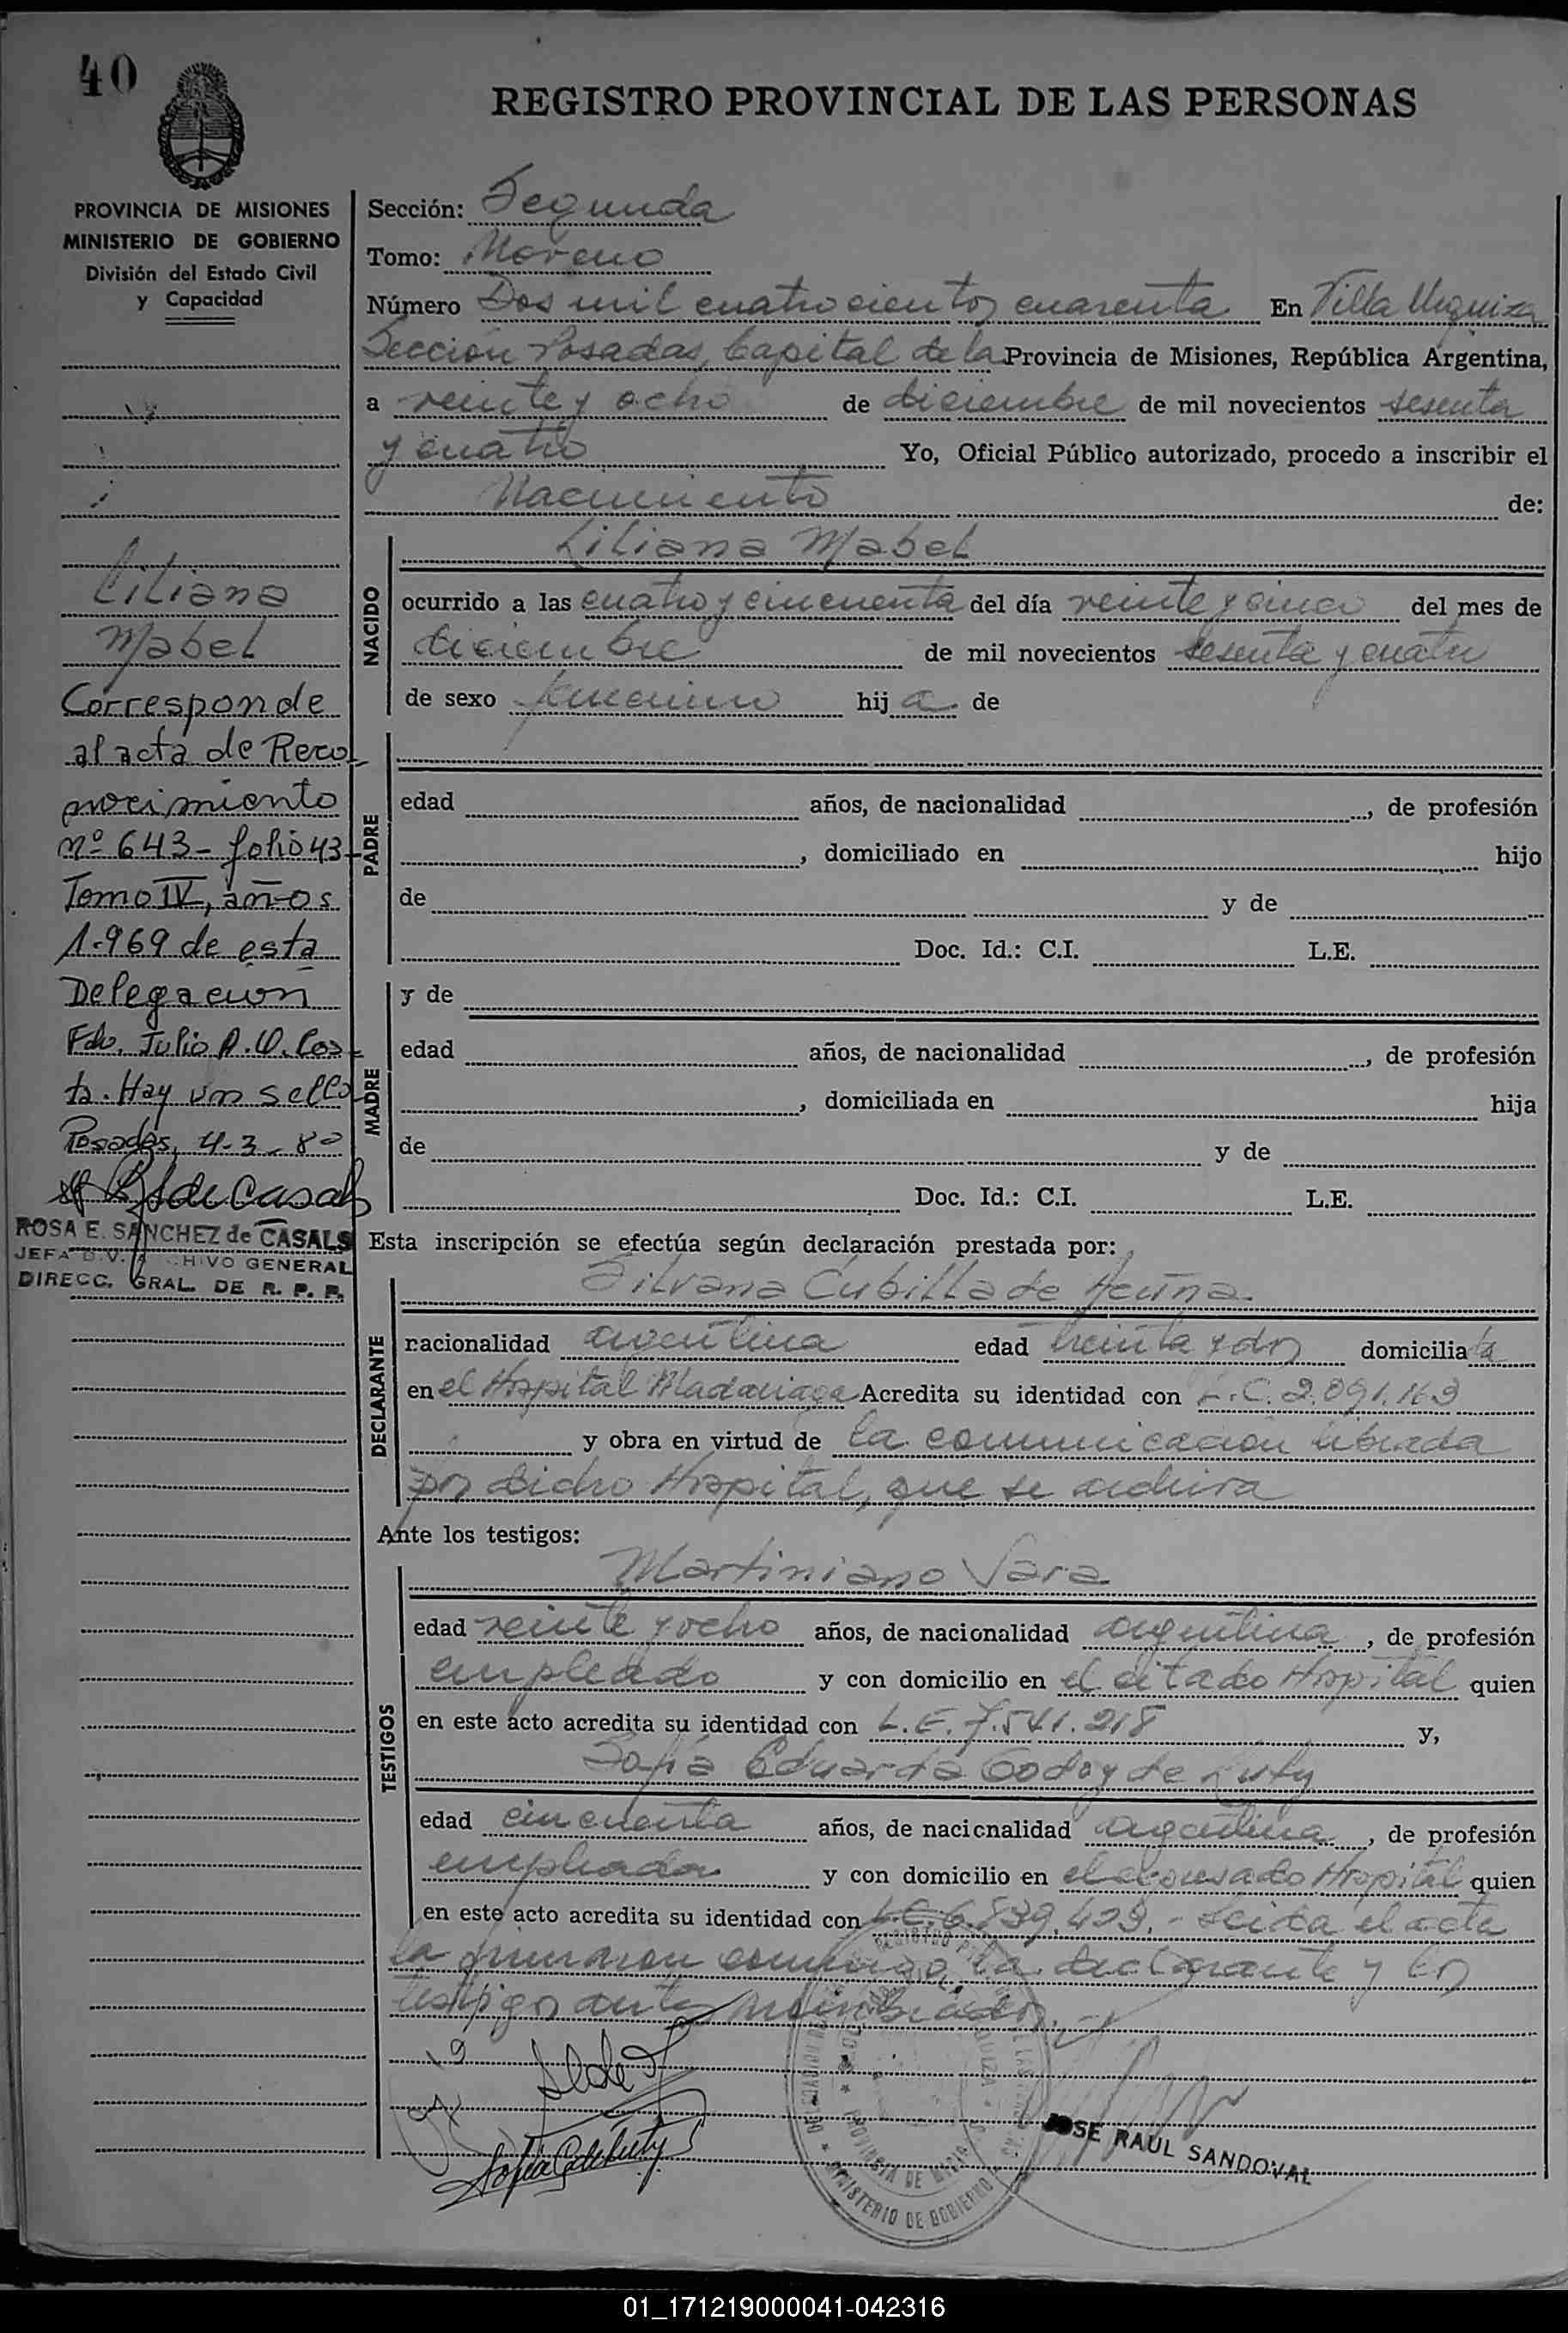 40
REGISTRO PROVINCIAL DE LAS PERSONAS
PROVINCIA DE MISIONES
MINISTERIO DE GOBIERNO
División del Estado Civil
y Capacidad
Liliana
Mabel
Corresponde
al acta de Reco-
nocimiento
nº 643 - folio 43-
Tomo IV, años
1.969 de esta
Delegacion
Fdo. Julio A. Cos-
ta. Hay un sello
Posadas, 4-3-80
ROSA E. SANCHEZ de CASALS
JEFA DIV. ARCHIVO GENERAL
DIRECC. GRAL. DE R. P. P.
Sección: Segunda
Tomo: Moreno
Número Dos mil cuatrocientos cuarenta En Villa Urquiza
Sección Posadas, Capital de la Provincia de Misiones, República Argentina,
a veinte y ocho de diciembre de mil novecientos sesenta
y cuatro Yo, Oficial Público autorizado, procedo a inscribir el
Nacimiento de:
NACIDO
Liliana Mabel
ocurrido a las cuatro y cincuenta del día veinte y cinco del mes de
diciembre de mil novecientos sesenta y cuatro
de sexo femenino hija de
PADRE
edad años, de nacionalidad , de profesión
, domiciliado en hijo
de y de
Doc. Id.: C.I. L.E.
MADRE
y de
edad años, de nacionalidad , de profesión
, domiciliada en hija
de y de
Doc. Id.: C.I. L.E.
Esta inscripción se efectúa según declaración prestada por:
DECLARANTE
Silvana Cubilla de Acuña
nacionalidad argentina edad treinta y dos domiciliada
en el Hospital Madariaga Acredita su identidad con L.C. 2.091.163
y obra en virtud de la comunicación librada
por dicho Hospital, que se archiva
Ante los testigos:
TESTIGOS
Martiniano Vara
edad veinte y ocho años, de nacionalidad argentina, de profesión
empleado y con domicilio en el citado Hospital quien
en este acto acredita su identidad con L.E. 7.541.218 y,
Sofía Eduarda Godoy de Luty
edad cincuenta años, de nacionalidad argentina, de profesión
empleada y con domicilio en el expresado Hospital quien
en este acto acredita su identidad con L.C. 6.839.409.- Leída el acta
la firmaron conmigo, la declarante y los
testigos antes nombrados.-
JOSE RAUL SANDOVAL
PROVINCIA DE MISIONES
MINISTERIO DE GOBIERNO
01_171219000041-042316